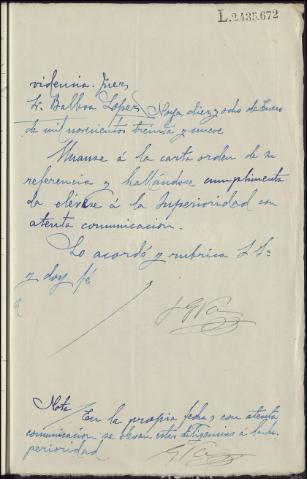 L.2435.672
videncia. Juez
Sr. Balboa López, Noya diez y ocho de Enero
de mil novecientos treinta y nueve
Unase á la carta orden de su
referencia y hallándose cumplimenta
da elévese á la Superioridad con
atenta comunicación.
Lo acordó y rubrica S Sª
y doy fé
Nota En la propia fecha y con atenta
comunicación se elevan estas diligencias á la Su
perioridad